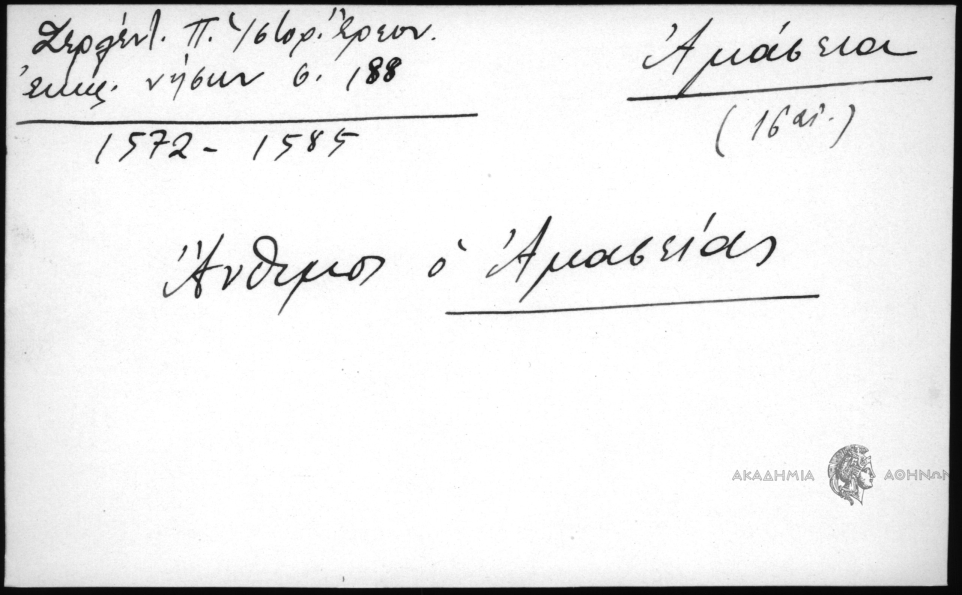 Ζερλέντ. Π. Ἱστορ. Ἔρευν.
ἐκκλ. νήσων σ. 188
1572 - 1585
Ἀμάσεια
(16 αἰ.)
Ἄνθιμος ὁ Ἀμασείας
ΑΚΑΔΗΜΙΑ ΑΘΗΝΩΝ